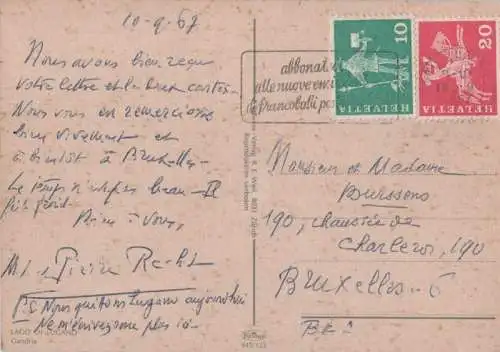 10-9-67
Nous avons bien reçu
votre lettre et la deux cartes.
Nous vous en remercions
bien vivement et
à bientôt à Bruxelles.
Le temps n'est pas beau - Il
fait froid.
Bien à vous,
M. Pierre
P.S. Nous quittons Lugano aujourd'hui
Ne m'écrivez donc plus ici.
LAGO DI LUGANO
Gandria
abbonat
alle nuove em
di francobolli p
10
HELVETIA
20
HELVETIA
Monsieur et Madame
Buissens
190, chaussée de
Charleroi, 190
Bruxelles-6
Verlag R. E. Wyss
Reproduction verboten